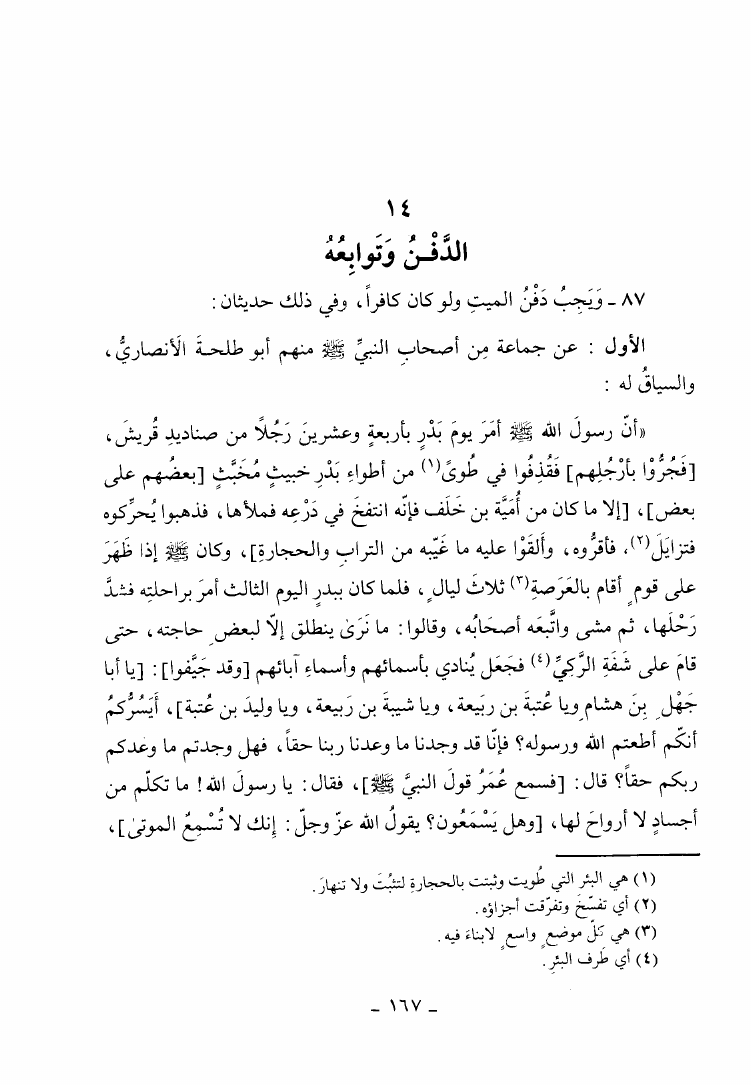 ١٤
الدَّفْنُ وَتَوابِعُهُ
٨٧ ـ وَيَجِبُ دَفْنُ الميتِ ولو كان كافراً، وفي ذلك حديثان :
الأول : عن جماعة مِن أصحابِ النبيِّ ﷺ منهم أبو طلحةَ الَأنصاريُّ،
والسياقُ له :
«أنّ رسولَ الله ﷺ أمَرَ يومَ بَدْرٍ بأربعةٍ وعشرينَ رَجُلًا من صناديدِ قُريشَ،
[فَجُرُّوْا بأرْجُلِهم] فَقُذِفُوا في طُوىً(١) من أطواءِ بَدْرٍ خبيثٍ مُخَبَّثٍ [بعضُهم على
بعض]، [إلا ما كان من أُمَيَّة بن خَلَف فإنّه انتفخَ في دَرْعِه فملأها، فذهبوا يُحرِّكوه
فتزايَلَ(٢)، فأقرُّوه، وألقَوْا عليه ما غَيّبه من الترابِ والحجارةِ]، وكان ﷺ إذا ظَهَرَ
على قومٍ أقام بالعَرَصةِ(٣) ثلاثَ ليالٍ، فلما كان ببدرٍ اليوم الثالث أمرَ براحلتِه فشدَّ
رَحْلَها، ثم مشى واتَّبعَه أصحَابُه، وقالوا: ما نَرَىٰ ينطلق إلّا لبعضِ حاجته، حتى
قامَ على شَفَةِ الرَّكيِّ(٤) فجَعَل يُنادي بأسمائهم وأسماءِ آبائهم [وقد جَيَّفوا]: [يا أبا
جَهْلِ بنَ هشامٍ ويا عُتبةَ بن ربَيعة، ويا شيبةَ بن رَبيعة، ويا وليدَ بن عُتبة]، أيَسُرُّكمُ
أنكّم أطعتم الله ورسوله؟ فإنّا قد وجدنا ما وعدنا ربنا حقاً، فهل وجدتم ما وعدكم
ربكم حقاً؟ قال: [فسمع عُمَرُ قولَ النبيَّ ﷺ]، فقال: يا رسولَ الله! ما تكلّم من
أجسادٍ لا أرواحَ لها، [وهل يَسْمَعُون؟ يقولُ الله عزّ وجلّ: إنك لا تُسْمِعُ الموتىٰ]،
(١) هي البئر التي طُويت وثبتت بالحجارةِ لتثبُتَ ولا تنهارَ.
(٢) أي تفسّخَ وتفرّقت أجزاؤه.
(٣) هي كلّ موضعٍ واسعٍ لابناءَ فيه.
(٤) أي طَرف البئرِ.
ـ ١٦٧ ـ